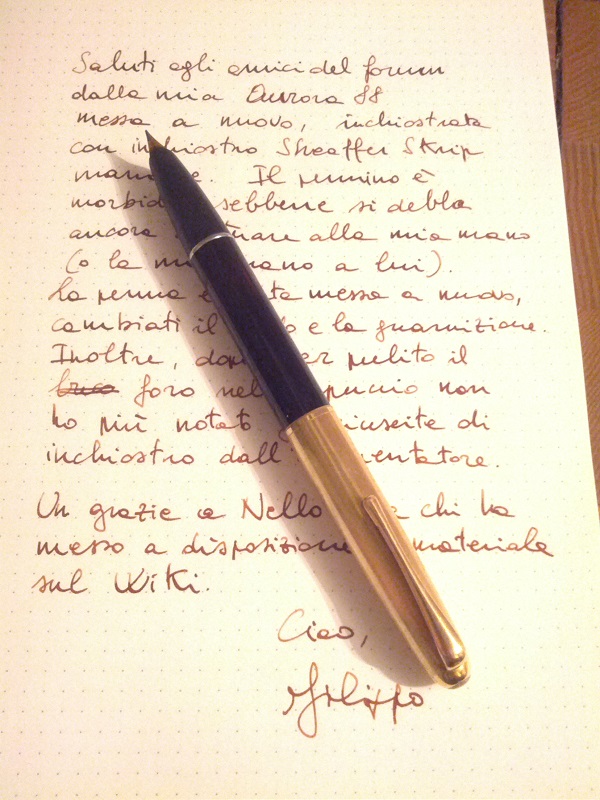 Saluti agli amici del forum
dalla mia Aurora 88
messa a nuovo, inchiostrata
con inchiostro Sheaffer Skrip
. Il pennino è
sebbene si debba
ancora alla mia mano
(o la mano a lui).
La penna messa a nuovo,
cambiati il e la guarnizione.
Inoltre, pulito il
buco foro nel non
ho più notato di
inchiostro dall'
Un grazie a Nello chi ha
messo a disposizione materiale
sul Wiki.
Ciao,
Filippo